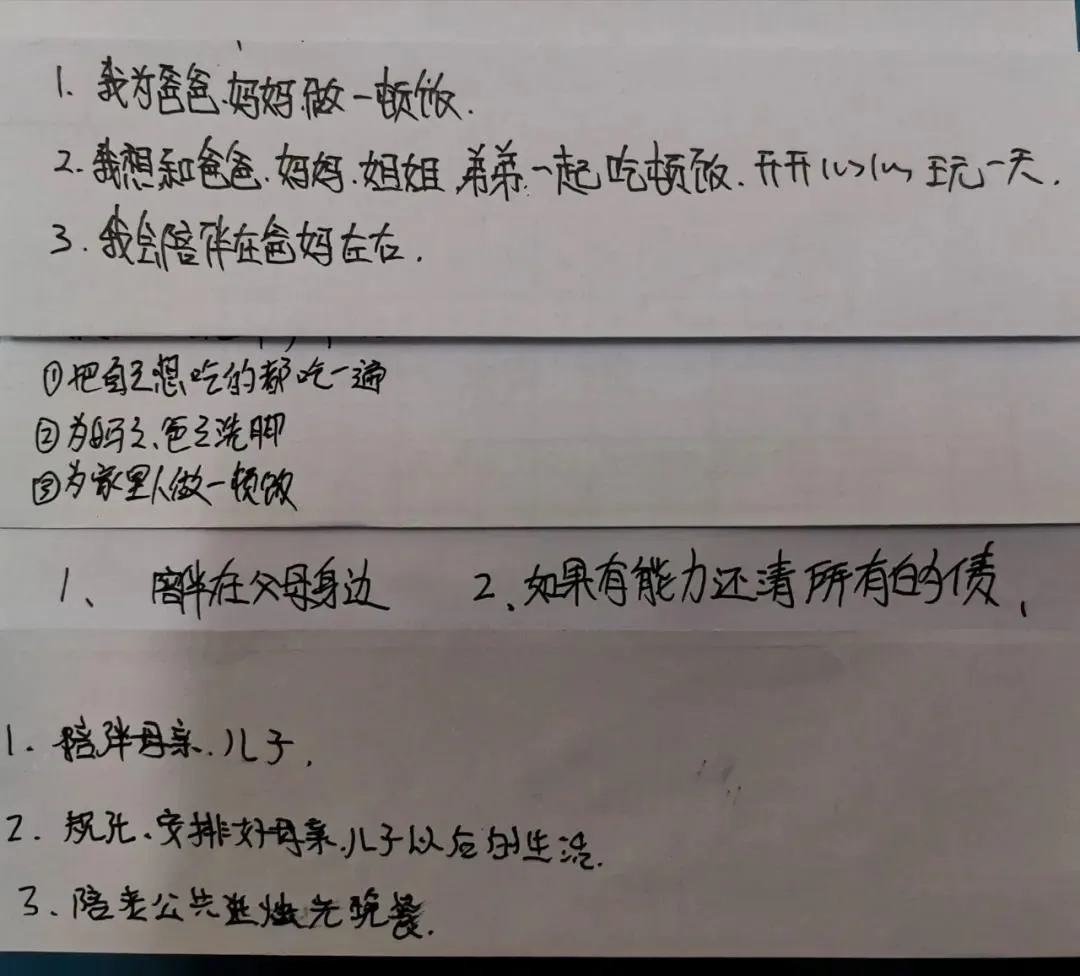 1. 我为爸爸.妈妈.做一顿饭.
2. 我想和爸爸.妈妈.姐姐.弟弟.一起吃顿饭.开开心心玩一天.
3. 我会陪伴在爸妈左右.
①把自己想吃的都吃一遍
②为妈之、爸之洗脚
③为家里人做一顿饭
1、 陪伴在父母身边 2、如果有能力还清所有的债,
1. 陪伴母亲.儿子.
2. 规化.安排好母亲.儿子以后的生活.
3、陪老公共进烛光晚餐.